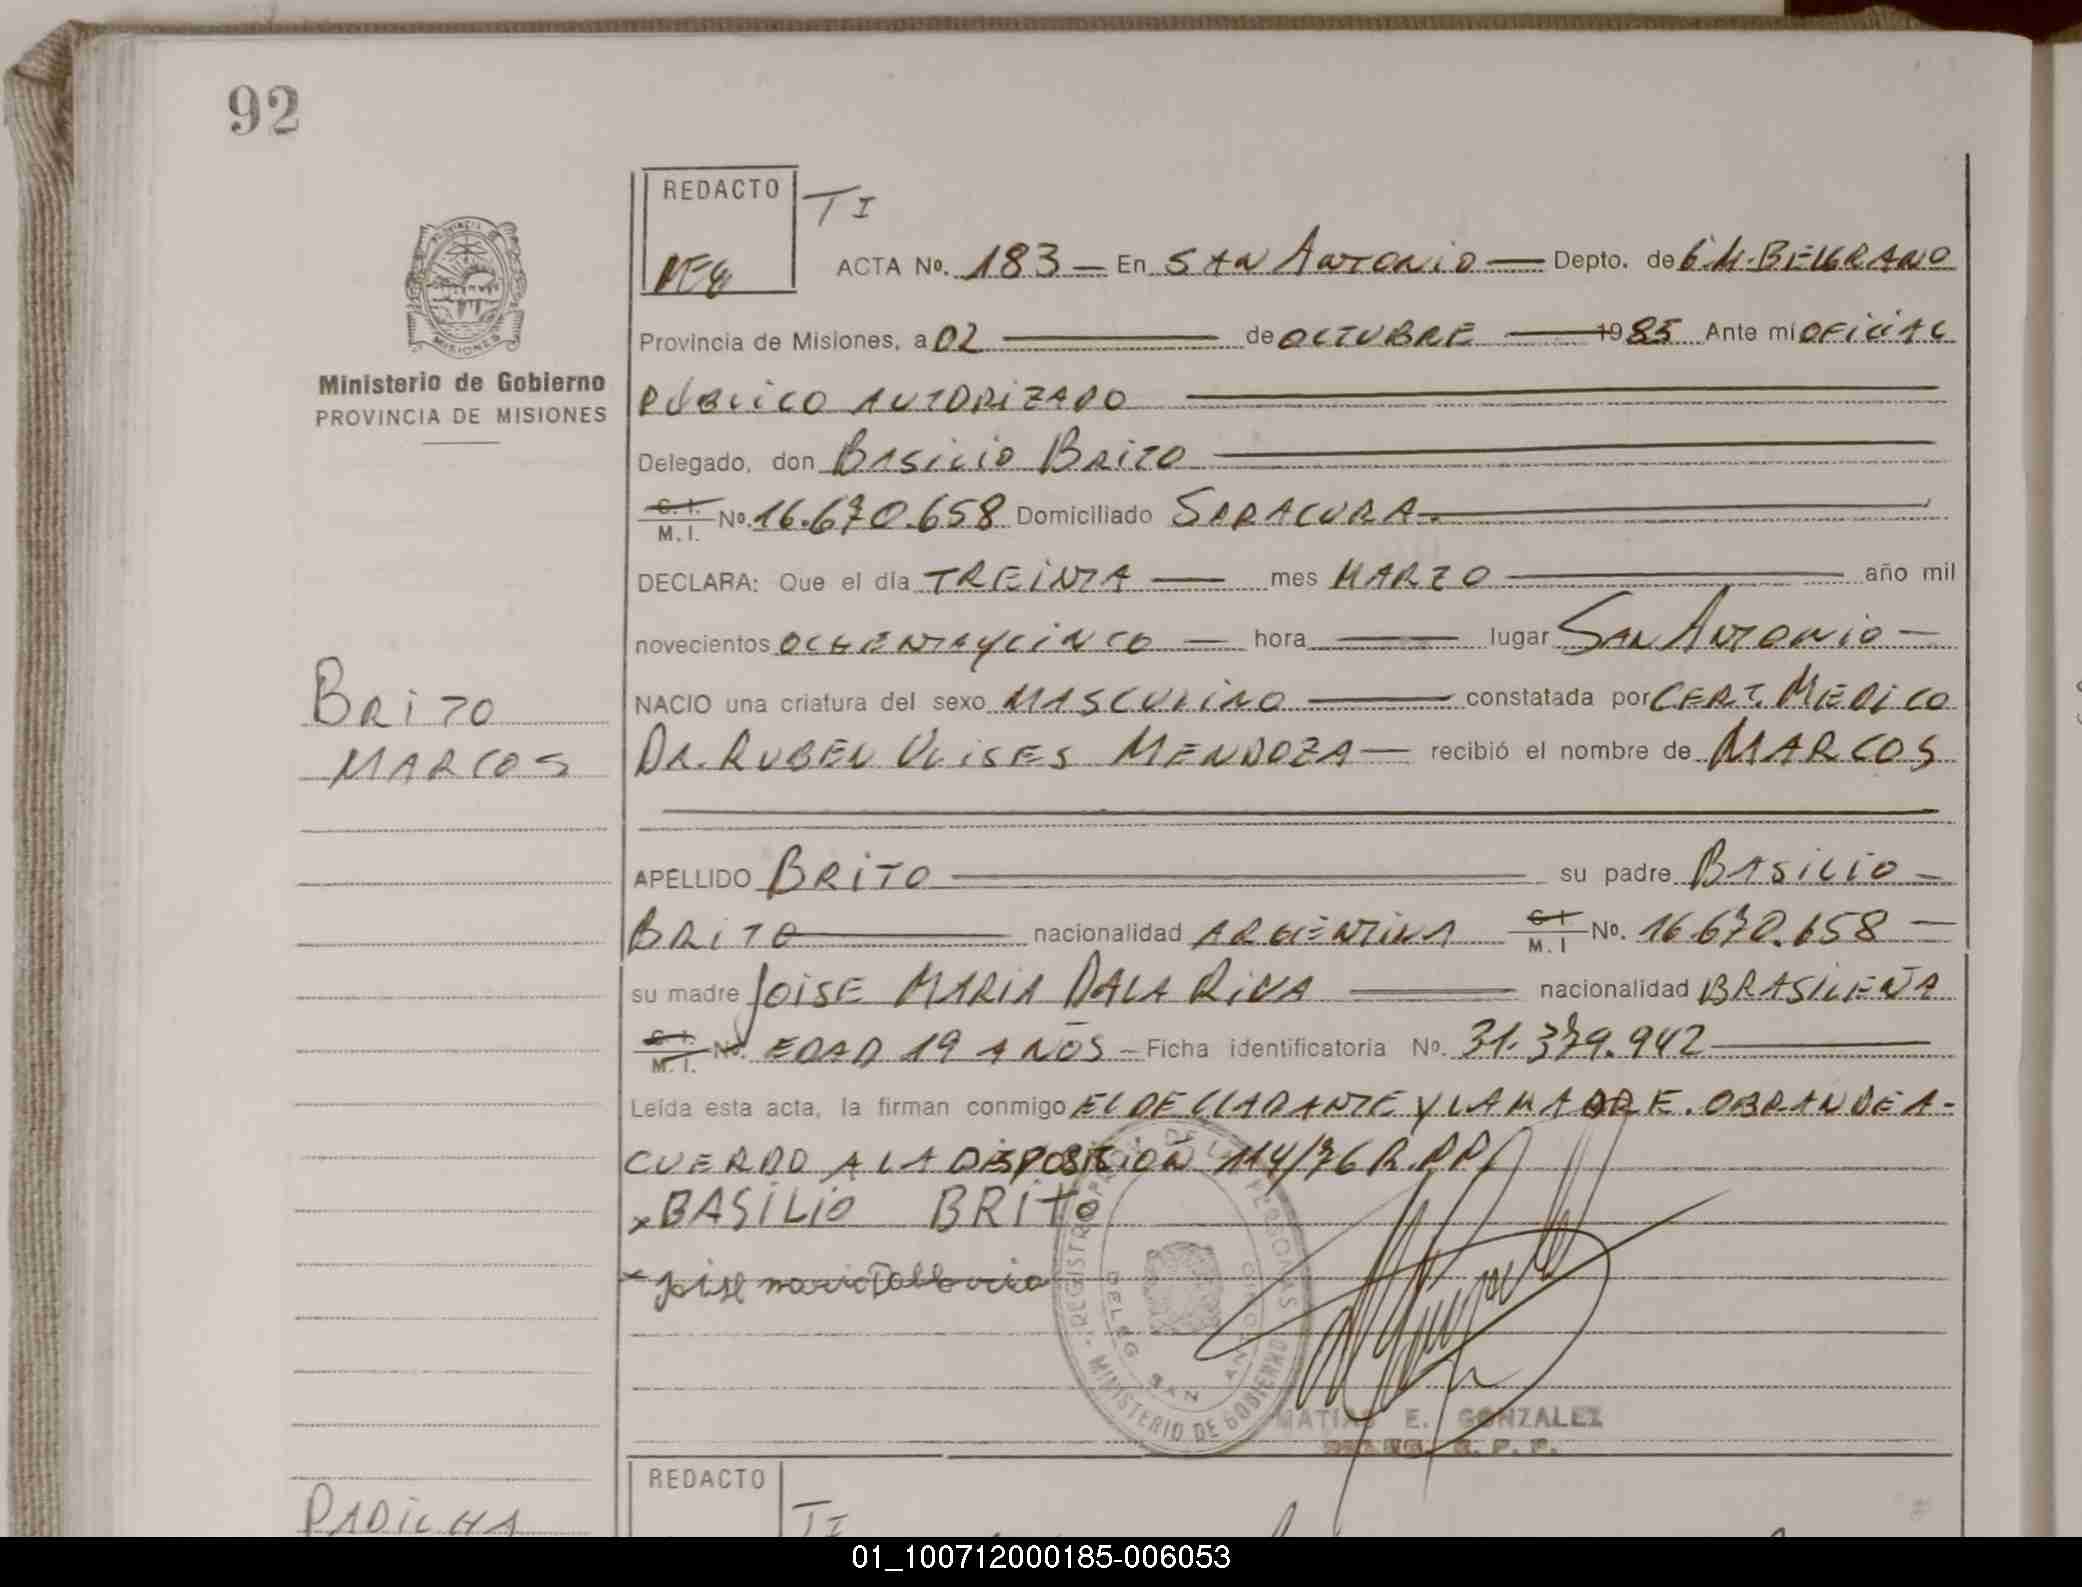 92
REDACTO
TI
ACTA No. 183 — En SAN ANTONIO — Depto. de G.M. BELGRANO
Provincia de Misiones, a 02 — de OCTUBRE — 1985 Ante mi OFICIAL
PÚBLICO AUTORIZADO
Ministerio de Gobierno
PROVINCIA DE MISIONES
Delegado, don BASILIO BRITO
C. I. M. I. No. 16.670.658 Domiciliado SARACURA.
DECLARA: Que el día TREINTA — mes MARZO — año mil
novecientos OCHENTA Y CINCO — hora — lugar SAN ANTONIO —
NACIO una criatura del sexo MASCULINO — constatada por CERT. MEDICO
DR. RUBEN ULISES MENDOZA — recibió el nombre de MARCOS
BRITO
MARCOS
APELLIDO BRITO — su padre BASILIO —
BRITO — nacionalidad ARGENTINA C. I. M. I No. 16.670.658 —
su madre JOISE MARIA DALA RIVA — nacionalidad BRASILEÑA
C. I. M. I. No. EDAD 19 AÑOS — Ficha identificatoria No. 31.379.942 —
Leída esta acta, la firman conmigo EL DECLARANTE Y LA MADRE. OBRAN DE A-
CUERDO A LA DISPOSICIÓN 114/76 R.P.P.
x BASILIO BRITO
x Joise maria
REGISTRO DE LAS PERSONAS
DELEG. SAN ANTONIO
MINISTERIO DE GOBIERNO
MATIAS E. GONZALEZ
REDACTO
TI
PADILHA
01_100712000185-006053